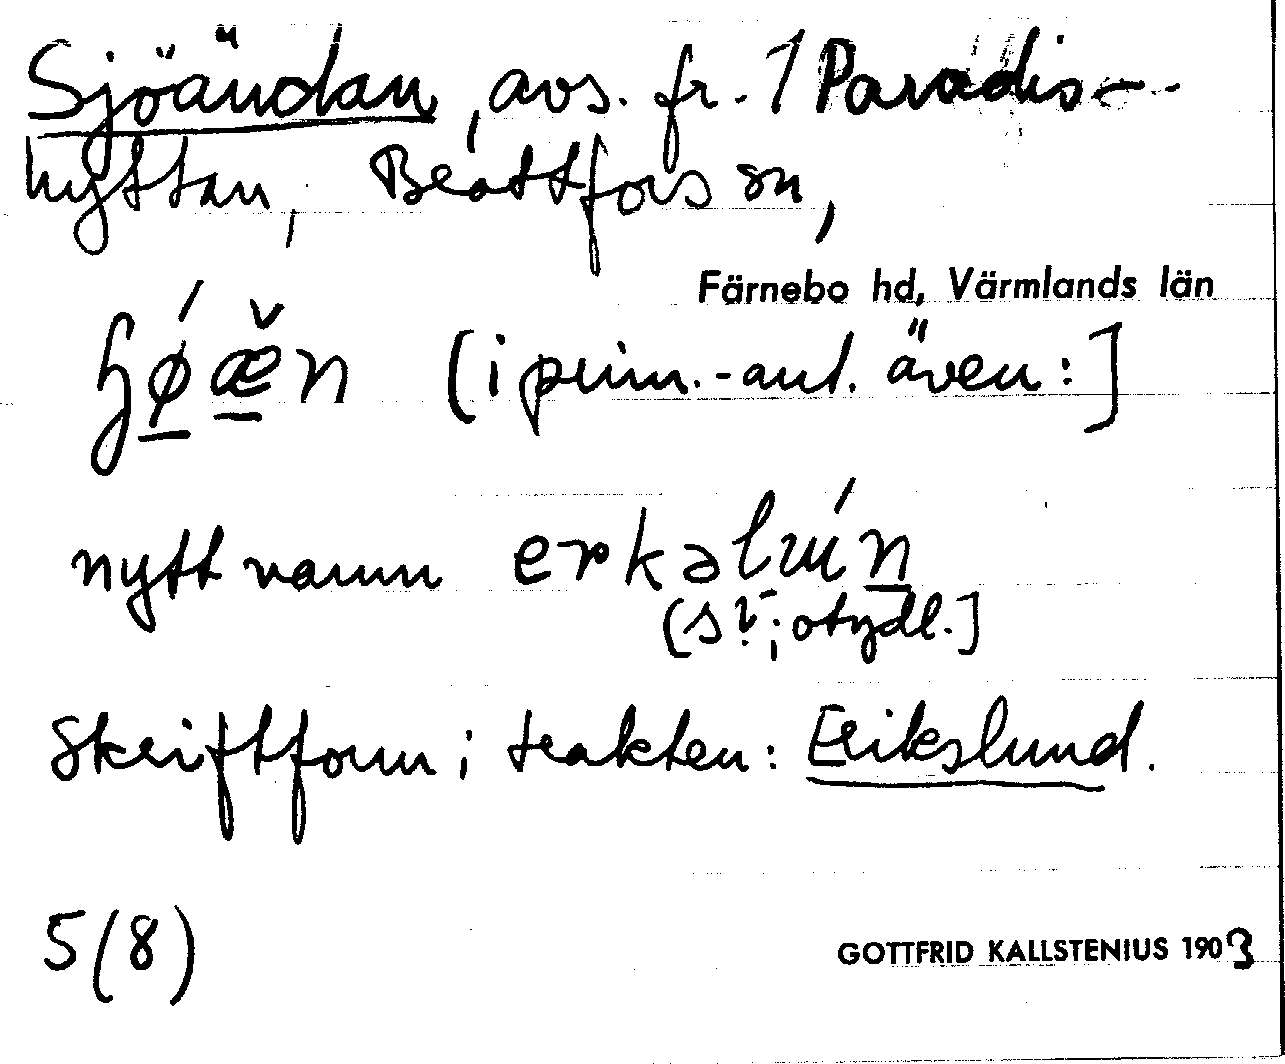 Sjöändan, avs. fr. 1 Paradis-
hyttan, Brattfors sn,
Färnebo hd, Värmlands län
[i prim.-ant. även:]
nytt namn
[s ?; otydl.]
Skriftform i trakten: Erikslund.
5(8)
GOTTFRID KALLSTENIUS 1903